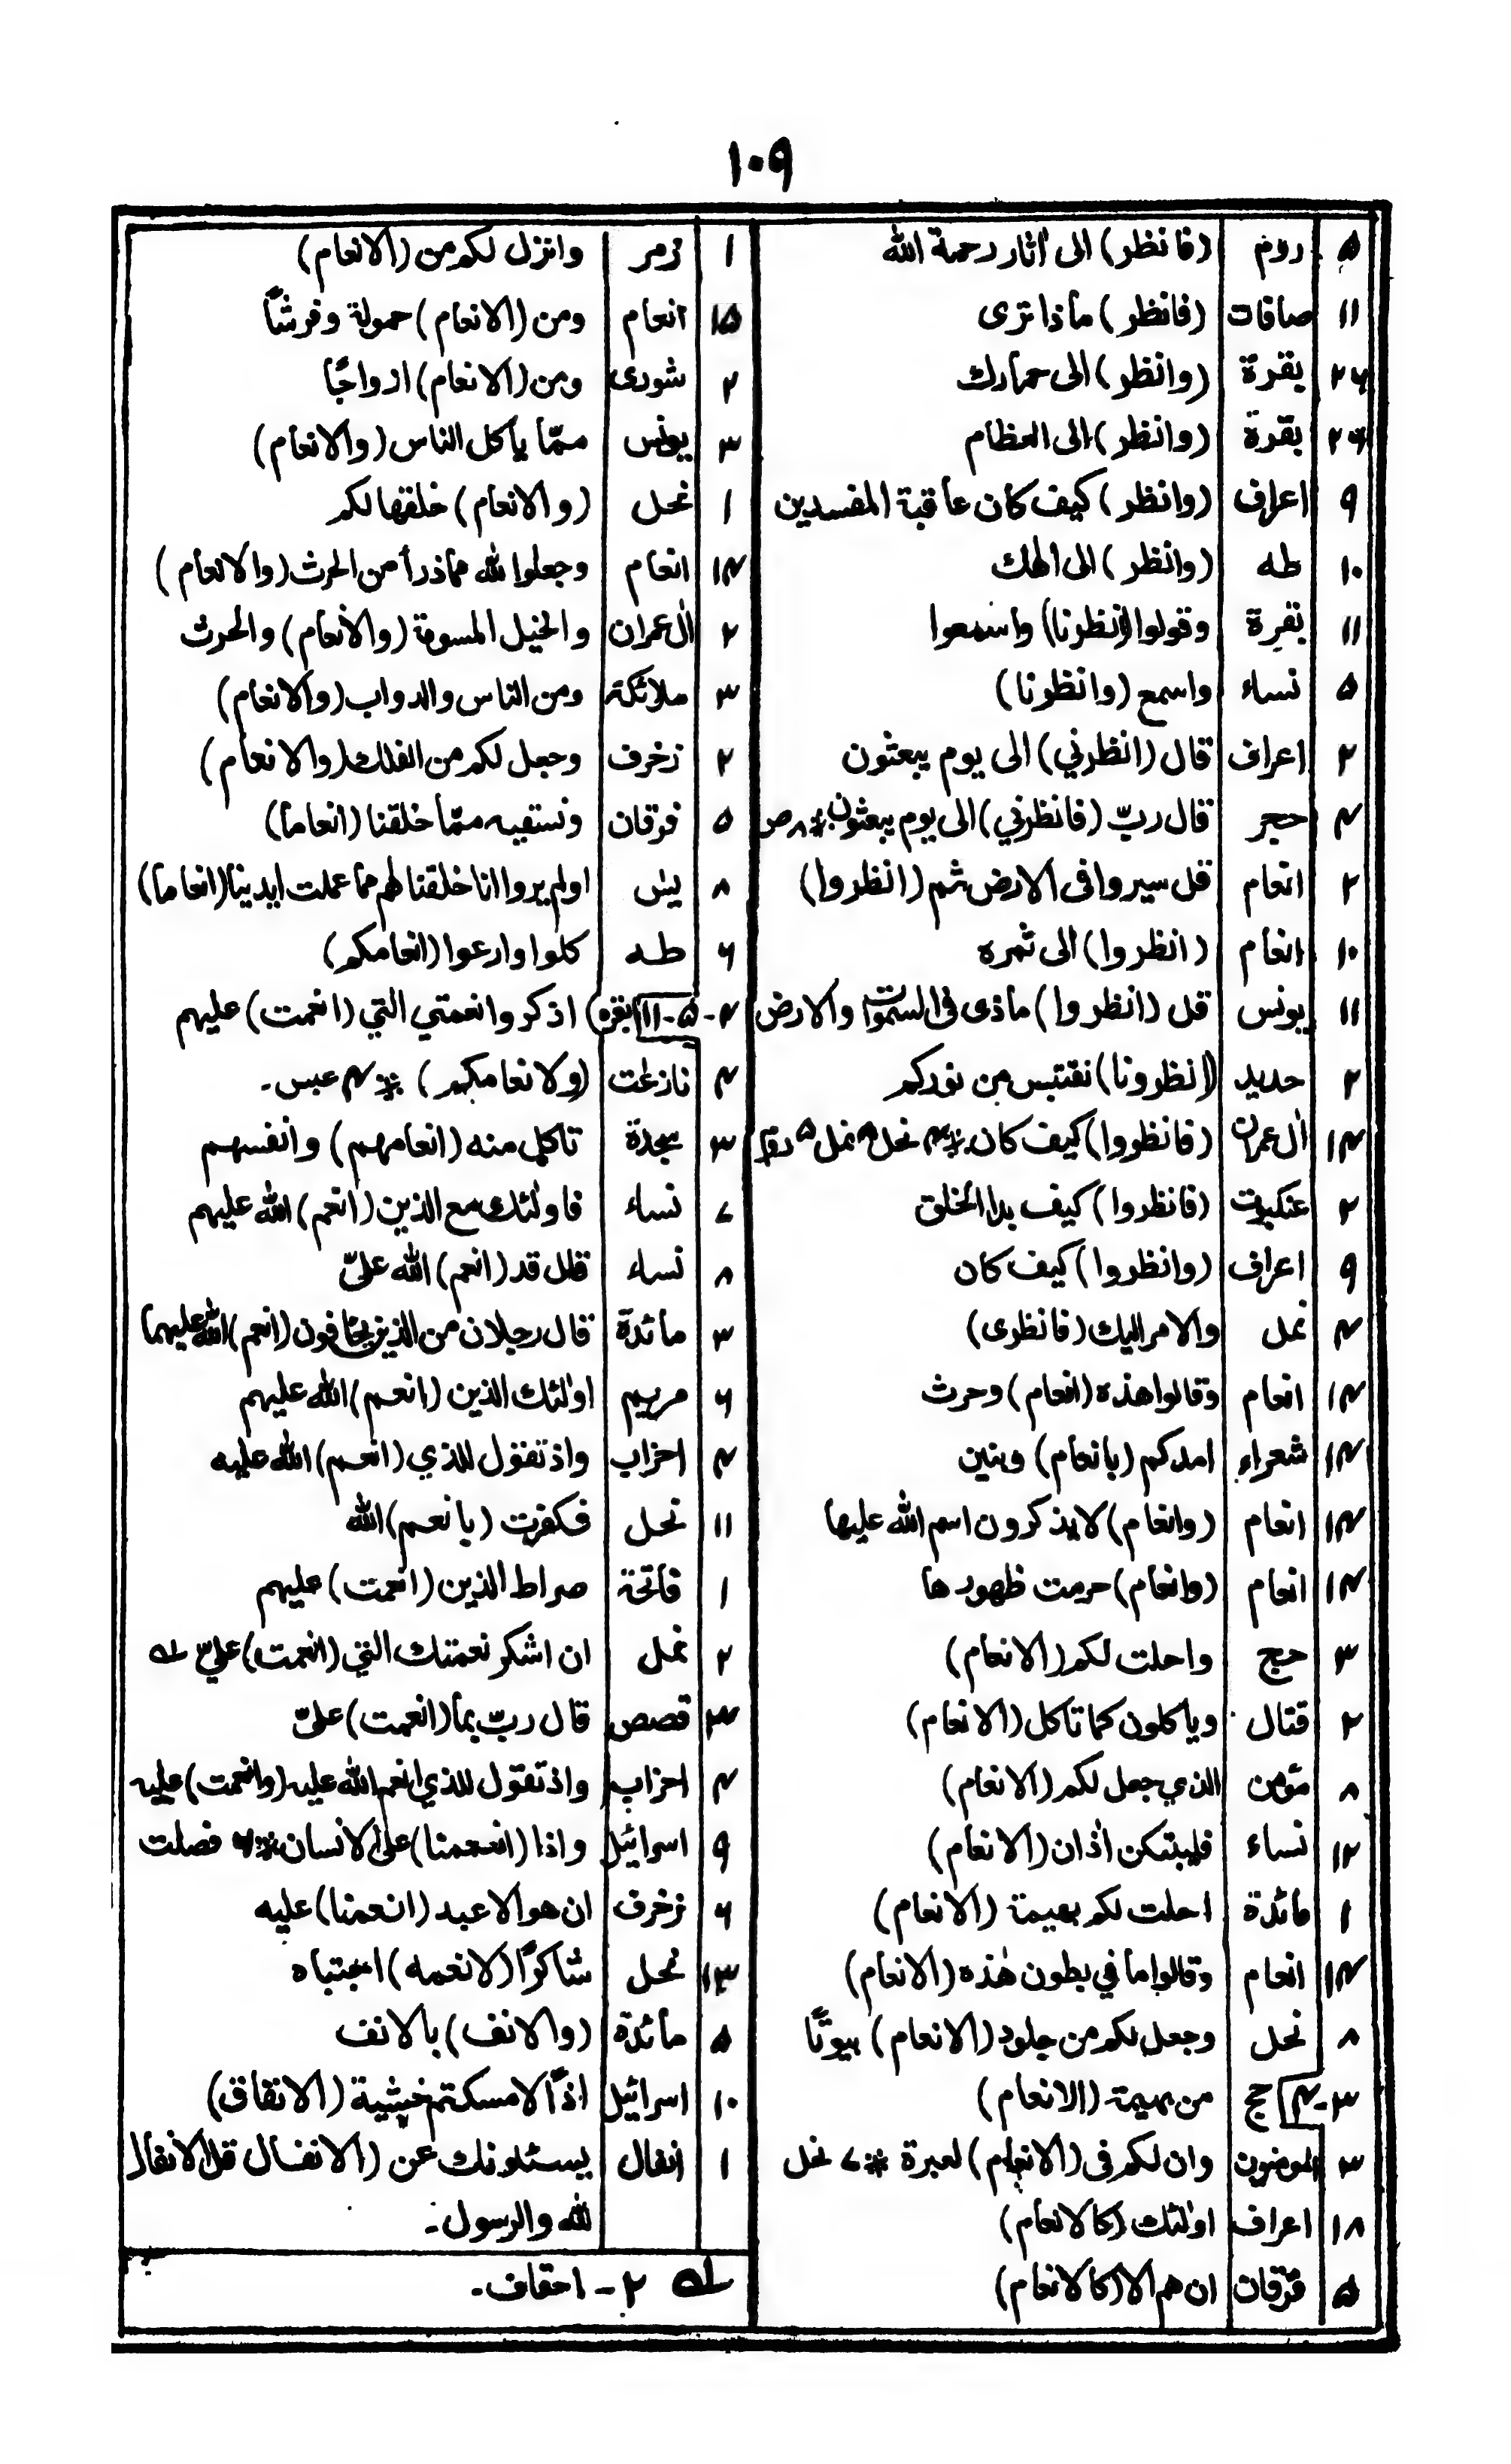 ۱۰۹
۵ روم (فانظر) الى اٰثار رحمة الله
۱۱ صافات (فانظر) ماذا ترى
۲۶ بقرة (وانظر) الى حمارك
۲۶ بقرة (وانظر) الى العظام
۹ اعراف (وانظر) كيف كان عاقبة المفسدين
۱۰ طه (وانظر) الى الٰهك
۱۱ بقرة وقولوا (انظرنا) واسمعوا
۵ نساء واسمع (وانظرنا)
۲ اعراف قال (انظرني) الى يوم يبعثون
۳ حجر قال ربّ (فانظرني) الى يوم يبعثون ※ ۸ ص
۲ انعام قل سيروا فى الارض ثم (انظروا)
۱۰ انعام (انظروا) الى ثمره
۱۱ يونس قل (انظروا) ماذى فى السمٰوات والارض
۲ حديد (انظرونا) نقتبس من نوركم
۱۴ اٰل عمران (فانظروا) كيف كان ※ ۴ نحل ۸ نمل ۵
۲ عنكبوت (فانظروا) كيف بدا الخلق
۹ اعراف (وانظروا) كيف كان
۴ نمل والامر اليك (فانظرى)
۱۴ انعام وقالوا هذه (انعام) وحرث
۱۴ شعراء امدكم (بانعام) وبنين
۱۴ انعام (وانعام) لا يذكرون اسم الله عليها
۱۴ انعام (وانعام) حرمت ظهورها
۳ حج واحلت لكم (الانعام)
۲ قتال وياكلون كما تاكل (الانعام)
۸ مؤمن الذي جعل لكم (الانعام)
۱۲ نساء فليبتكن اٰذان (الانعام)
۱ مائدة احلت لكم بهيمة (الانعام)
۱۴ انعام وقالوا ما في بطون هٰذه (الانعام)
۸ نحل وجعل لكم من جلود (الانعام) بيوتًا
۳-۴ حج من بهيمة (الانعام)
۳ المومنون وان لكم فى (الانعام) لعبرة ※ ۷ نحل
۱۸ اعراف اولٰئك (كالانعام)
۵ فرقان ان هم الا (كالانعام)
۱ زمر وانزل لكم من (الانعام)
۱۵ انعام ومن (الانعام) حمولة وفرشًا
۲ شورى ومن (الانعام) ازواجًا
۳ يونس ممّا ياكل الناس (والانعام)
۱ نحل (والانعام) خلقها لكم
۱۴ انعام وجعلوا لله مما ذرأ من الحرث (والانعام)
۲ اٰل عمران والخيل المسومة (والانعام) والحرث
۳ ملائكة ومن الناس والدواب (والانعام)
۲ زخرف وجعل لكم من الفلك (والانعام)
۵ فرقان ونسقيه ممّا خلقنا (انعاما)
۸ يس اولم يروا انا خلقنا لهم مما عملت ايدينا (انعاما)
۶ طه كلوا وارعوا (انعامكم)
۴-۵-۱۱ بقره) اذكروا نعمتي التي (انعمت) عليهم
۴ نازعت (ولانعامكم) ※ ۴ عبس۔
۳ سجدة تاكل منه (انعامهم) وانفسهم
۷ نساء فاولٰئك مع الذين (انعم) الله عليهم
۸ نساء قال قد (انعم) الله عليّ
۳ مائدة قال رجلان من الذين يخافون (انعم) الله عليهما
۶ مريم اولٰئك الذين (انعم) الله عليهم
۴ احزاب واذ تقول للذي (انعم) الله عليه
۱۱ نحل فكفرت (بانعم) الله
۱ فاتحة صراط الذين (انعمت) عليهم
۲ نمل ان اشكر نعمتك التي (انعمت) عليّ ؎
قصص قال ربّ بما (انعمت) عليّ
۴ احزاب واذ تقول للذي انعم الله عليه (وانعمت) عليه
۹ اسرائيل واذا (انعمنا) على الانسان ※ ۶ فصلت
۶ زخرف ان هو الا عبد (انعمنا) عليه
۱۳ نحل شاكرًا (لانعمه) اجتباه
۵ مائدة (والانف) بالانف
۱۰ اسرائيل اذًا لامسكتم خشية (الانفاق)
۱ انفال يسئلونك عن (الانفال قل الانفال
لله والرسول۔
؎ ۲ - احقاف۔